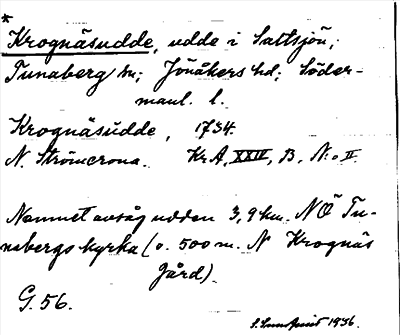 *
Krognäsudde, udde i Saltsjön;
Tunaberg sn; Jönåkers hd; Söder-
manl. l.
Krognäsudde, 1734.
N. Strömcrona. Kr.A. XXIV, B, N:o II.
Namnet avsåg udden 3,9 km. NÖ Tu-
nabergs kyrka (o. 500 m. N Krognäs
gård).
G. 56.
1936.